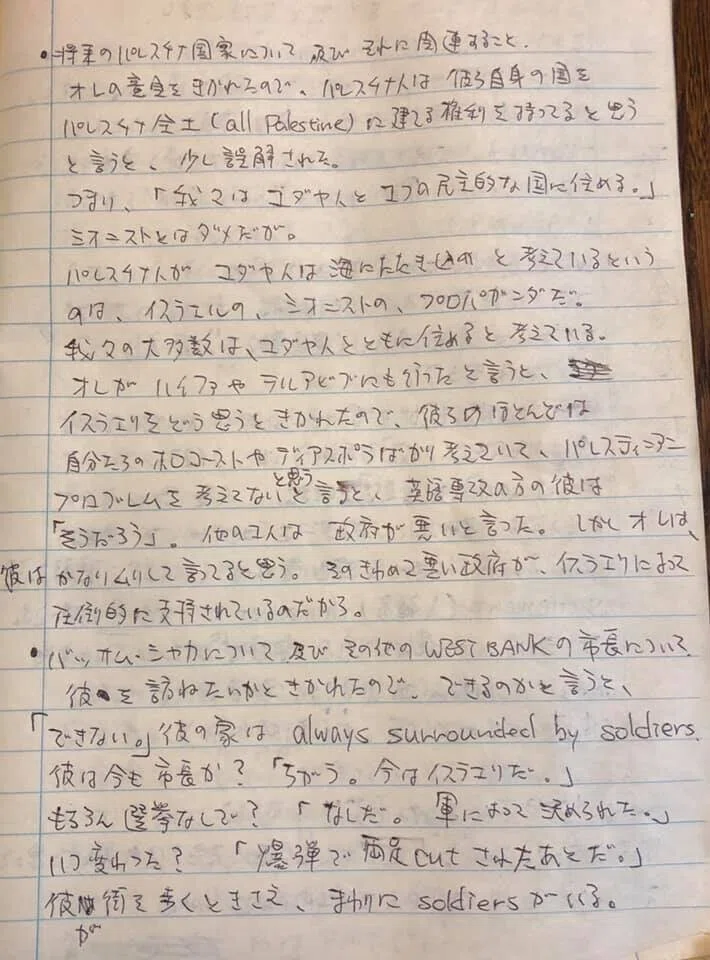 ・将来のパレスチナ国家について 及び それに関連すること.
オレの意見をきかれたので、パレスチナ人は 彼ら自身の国を
パレスチナ全土(all Palestine)に建てる権利を持ってると思う
と言うと、少し誤解された。
つまり、「我々は ユダヤ人と 1つの民主的な国に住める。」
ミオニストとはダメだが。
パレスチナ人が ユダヤ人は 海にたたき込め と考えているという
のは、イスラエルの、ミオニストの、プロパガンダだ。
我々の大多数は、ユダヤ人とともに住めると考えている。
オレが ハイファや テルアビブにも行ったと言うと、
イスラエリをどう思うときかれたので、彼らのほとんどは
自分たちのホロコーストや ディアスポラばかり考えていて、パレスティニアン
プロブレムを 考えてないと思うと言うと、英語専攻の方の彼は
「そうだろう」。 他の2人は 政府が悪いと言った。しかし オレは、
彼は かなりムリして 言ってると思う。そのきわめて悪い政府が、イスラエリによって
圧倒的に支持されているのだから。
・バッサム・シャカについて 及び その他の WEST BANK の市長について
彼を訪ねたいかときかれたので、できるのかと言うと、
「できない。」彼の家は always surrounded by soldiers.
彼は今も市長か? 「ちがう。今はイスラエリだ。」
もちろん選挙なしで? 「なしだ。軍によって決められた。」
いつ変わった? 「爆弾で両足cutされたあとだ。」
彼が街を歩くときさえ、まわりに soldiers がいる。